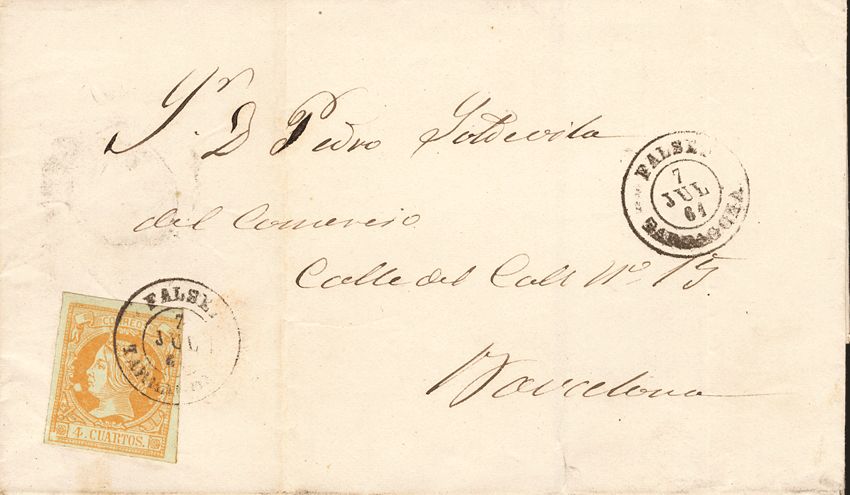 Sr. D. Pedro Soldevila
del Comercio
Calle del Call No. 15.
Barcelona
FALSET
7
JUL
61
TARRAGONA
FALSET
7
JUL
6
TARRAGONA
CORREOS
4 CUARTOS.